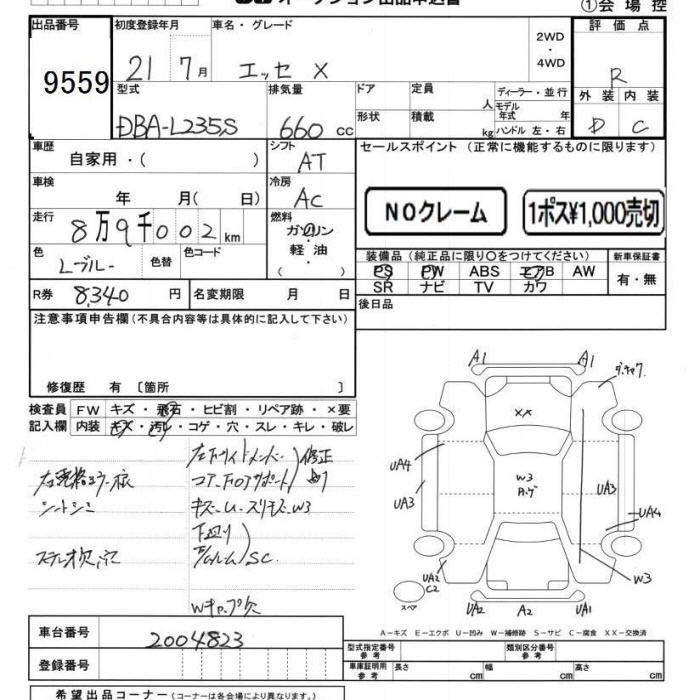 ①会場控
出品番号
9559
初度登録年月
21 7月
車名・グレード
エッセ X
2WD
・
4WD
評価点
R
外装 内装
D C
型式
DBA-L235S
排気量
660 cc
ドア
定員
人
形状
積載
kg
ディーラー・並行
モデル
年式 年
ハンドル 左・右
車歴
自家用・( )
シフト
AT
セールスポイント (正常に機能するものに限ります)
NOクレーム
1ポス¥1,000売切
車検
年 月( 日)
冷房
AC
走行
8万9千002km
燃料
ガソリン
軽・油
( )
色
Lブルー
色替
色コード
装備品 (純正品に限り○をつけてください)
PS PW ABS エアB AW
SR ナビ TV カワ
新車保証書
有・無
R券
8,340 円
名変期限 月 日
後日品
注意事項申告欄(不具合内容等は具体的に記入して下さい)
修復歴 有 〔箇所 〕
検査員 FW キズ・飛石・ヒビ割・リペア跡・×要
記入欄 内装 キズ・汚レ・コゲ・穴・スレ・キレ・破レ
左下サイドメンバー
修正
シートシミ
キズ・U・スリキズ・W3
下廻り
SC
Wキャップ欠
A1 A1
XX
UA4
UA3
W3
UA3
UA4
W3
UA2
C2
スペア
UA2 A2 UA1
A-キズ E-エクボ U-凹み W-補修跡 S-サビ C-腐食 XX-交換済
車台番号
2004823
登録番号
型式指定番号
参考
類別区分番号
参考
車庫証明用
参考
長さ cm 幅 cm 高さ cm
希望出品コーナー(コーナーは各会場により異なります。)